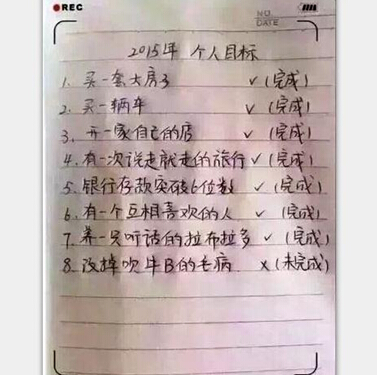 REC
NO.
DATE
2015年 个人目标
1. 买一套大房子 ✓(完成)
2. 买一辆车 ✓(完成)
3. 开一家自己的店 ✓(完成)
4. 有一次说走就走的旅行 ✓(完成)
5. 银行存款突破6位数 ✓(完成)
6. 有一个互相喜欢的人 ✓(完成)
7. 养一只听话的拉布拉多 ✓(完成)
8. 改掉吹牛B的毛病 ×(未完成)